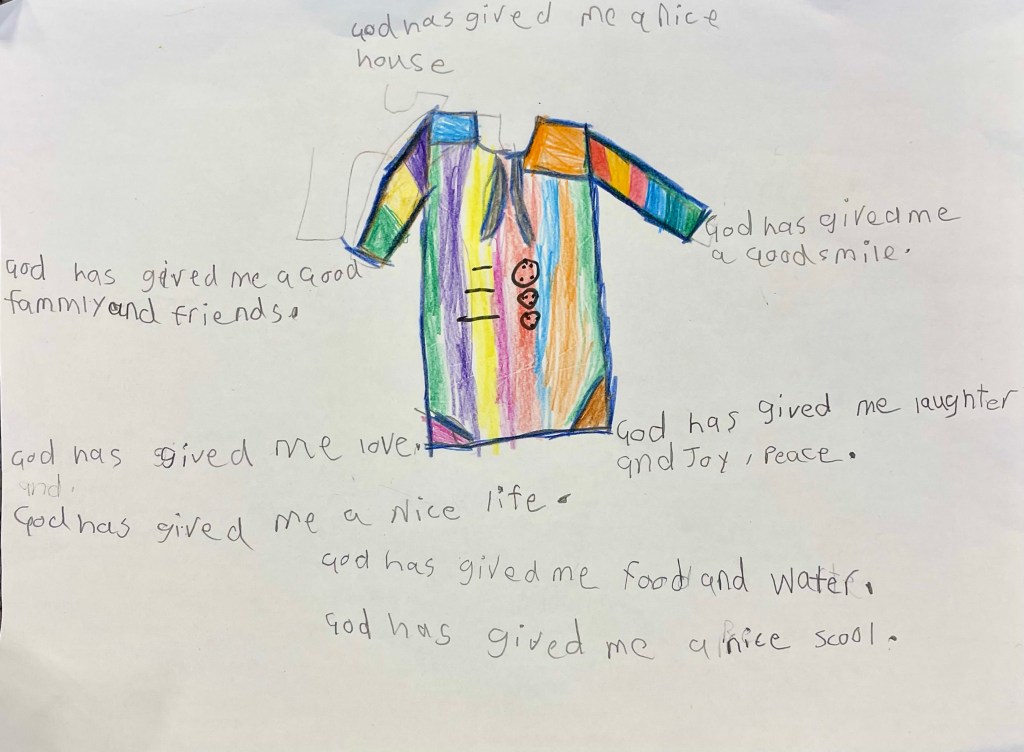 God has gived me a nice
house
God has gived me
a good smile.
God has gived me a Good
fammly and friends.
God has gived me laughter
and Joy, Peace.
God has gived me love.
and.
God has gived me a Nice life.
God has gived me food and water.
God has gived me a nice scool.